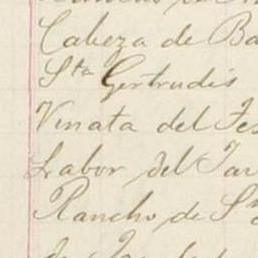 Cabeza de Ba
Sta Gertrudis
Vinata del Tes
Labor del Tar
Rancho de S
de